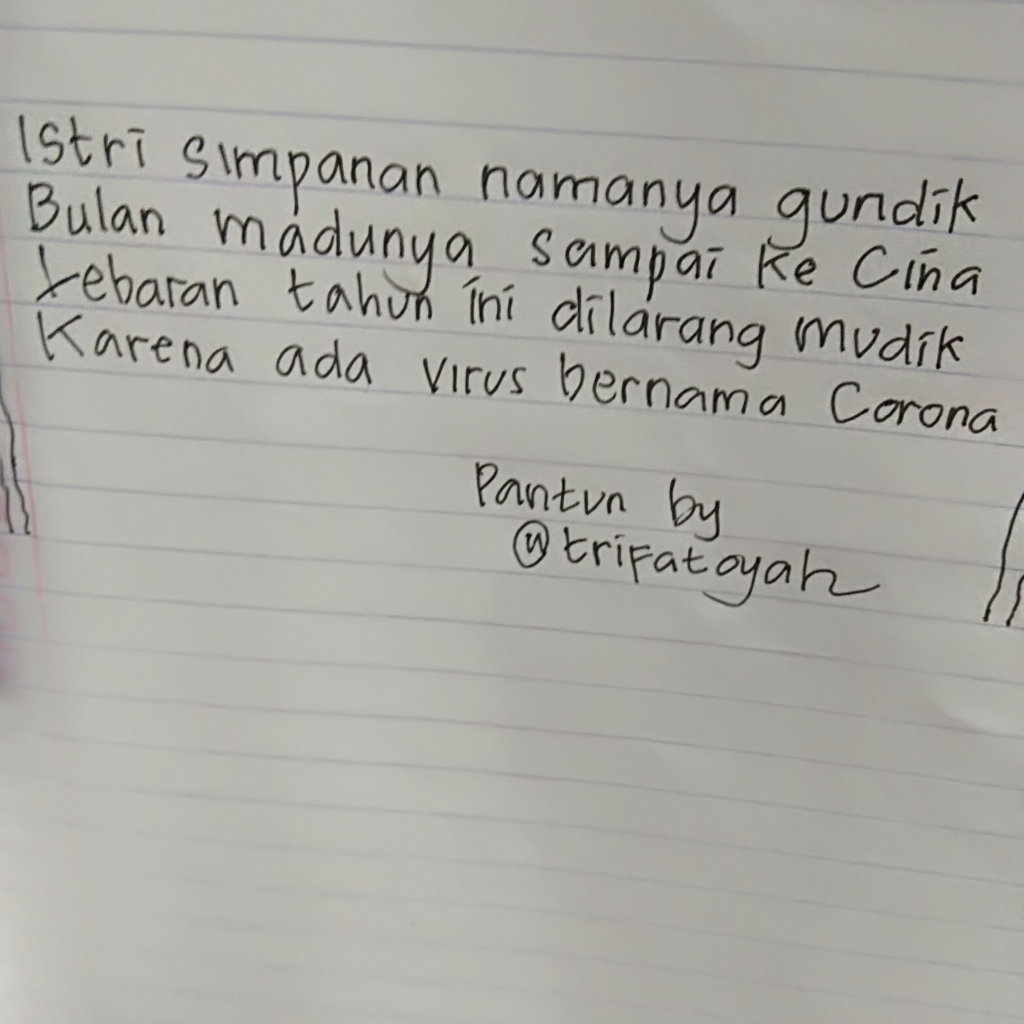 Istri simpanan namanya gundik
Bulan madunya sampai ke Cina
Lebaran tahun ini dilarang mudik
Karena ada virus bernama Corona
Pantun by
@trifatoyah